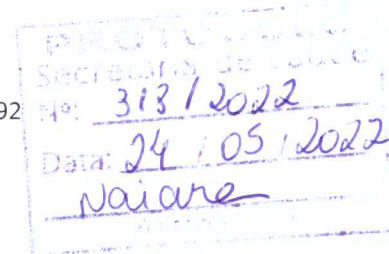 PROTOCOLO
Secretaria de
92 Nº: 313/2022
Data: 24/05/2022
Naiara